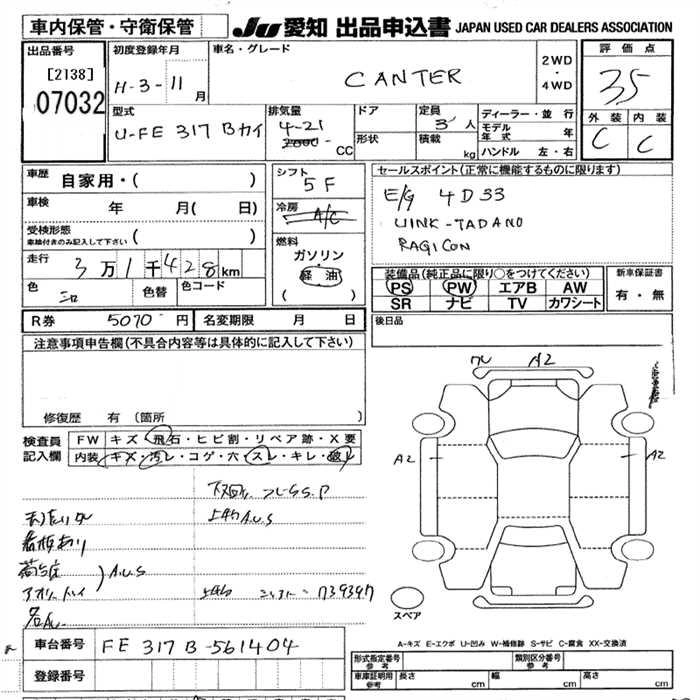 車内保管・守衛保管
JU 愛知 出品申込書 JAPAN USED CAR DEALERS ASSOCIATION
出品番号 初度登録年月 車名・グレード 2WD・4WD 評価点
[2138]
07032
H-3-11月
CANTER
35
型式 排気量 ドア 定員 ディーラー・並行 外装 内装
U-FE 317 Bカイ 4-21 2800 CC 形状 3人 積載 kg モデル年式 年 C C
ハンドル 左・右
車歴 自家用・( ) シフト 5F セールスポイント(正常に機能するものに限ります)
車検 年 月( 日) 冷房 A/C E/G 4D33
UINK-TADANO
受検形態 ( ) RAGICON
車検付きのみ記入して下さい
燃料 ガソリン・軽油 ( )
走行 3万1千428km
装備品(純正品に限り○をつけてください) 新車保証書
PS PW エアB AW 有・無
SR ナビ TV カワシート
色 シロ 色替 色コード
後日品
R券 5070円 名変期限 月 日
注意事項申告欄(不具合内容等は具体的に記入して下さい)
A2
修復歴 有 (箇所 )
検査員記入欄 FW キズ・飛石・ヒビ割・リペア跡・X要
内装 キズ・汚レ・コゲ・穴・スレ・キレ・破レ
A2 A2
下廻り
A.U.S
看板あり
A.U.S
739397
スペア
A-キズ E-エクボ U-凹み W-補修跡 S-サビ C-腐食 XX-交換済
車台番号 FE 317 B-561404
登録番号
形式指定番号 参考 類別区分番号 参考
車庫証明用 参考 長さ cm 幅 cm 高さ cm